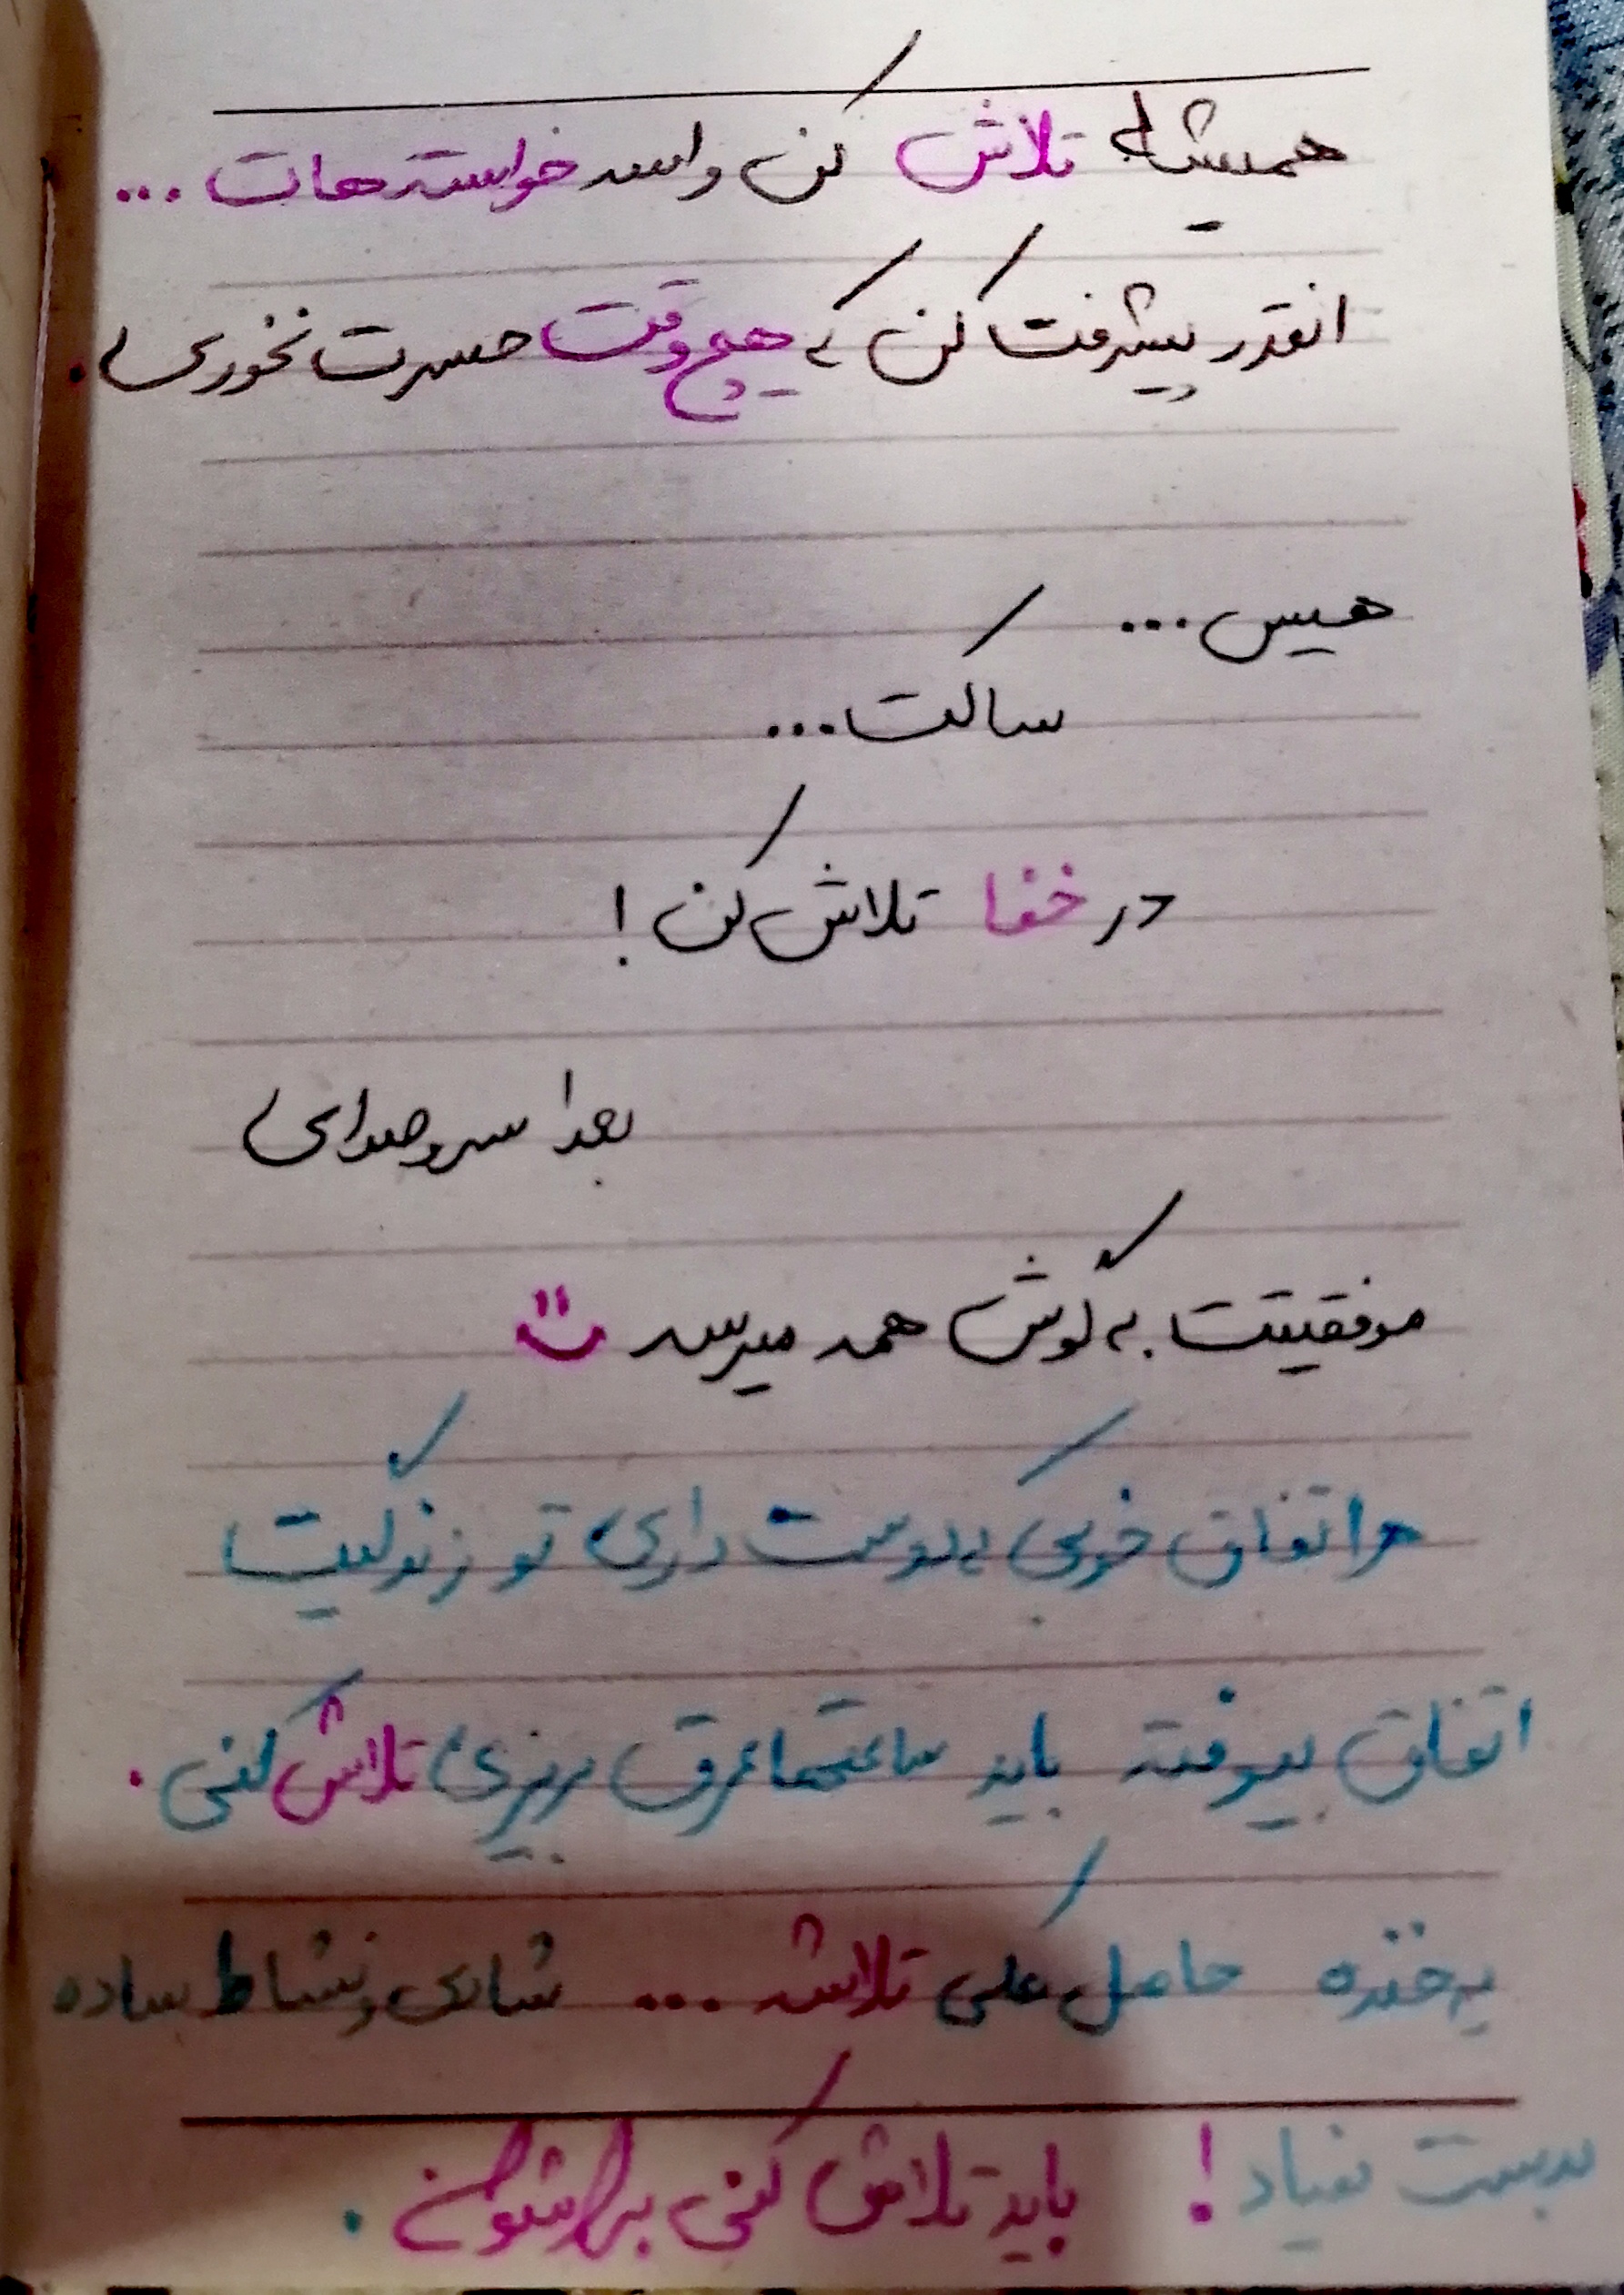 همیشه تلاش کن واسه خواسته‌هات ...
انقدر پیشرفت کن که هیچ‌وقت حسرت نخوری .
هیس ...
ساکت ...
در خفا تلاش کن !
بعدا سروصدای
موفقیتت به گوش همه میرسه
هر اتفاق خوبی که دوست داری تو زندگیت
اتفاق بیوفته باید ساعتها عرق بریزی تلاش کنی .
یه خنده حاصل کلی تلاشه ... شادی و نشاط ساده
بدست نمیاد ! باید تلاش کنی براشون .